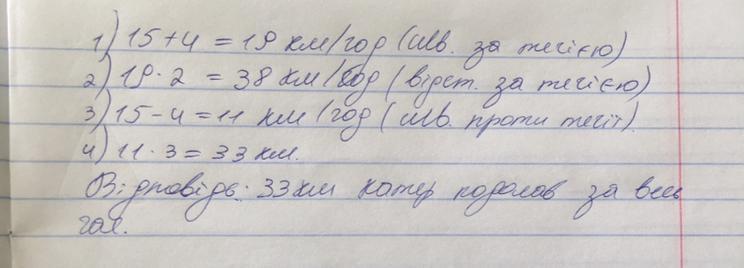 1) 15 + 4 = 19 км/год (шв. за течією)
2) 19 · 2 = 38 км/год (відст. за течією)
3) 15 - 4 = 11 км/год (шв. проти течії).
4) 11 · 3 = 33 км.
Відповідь: 33 км катер подолав за весь
час.